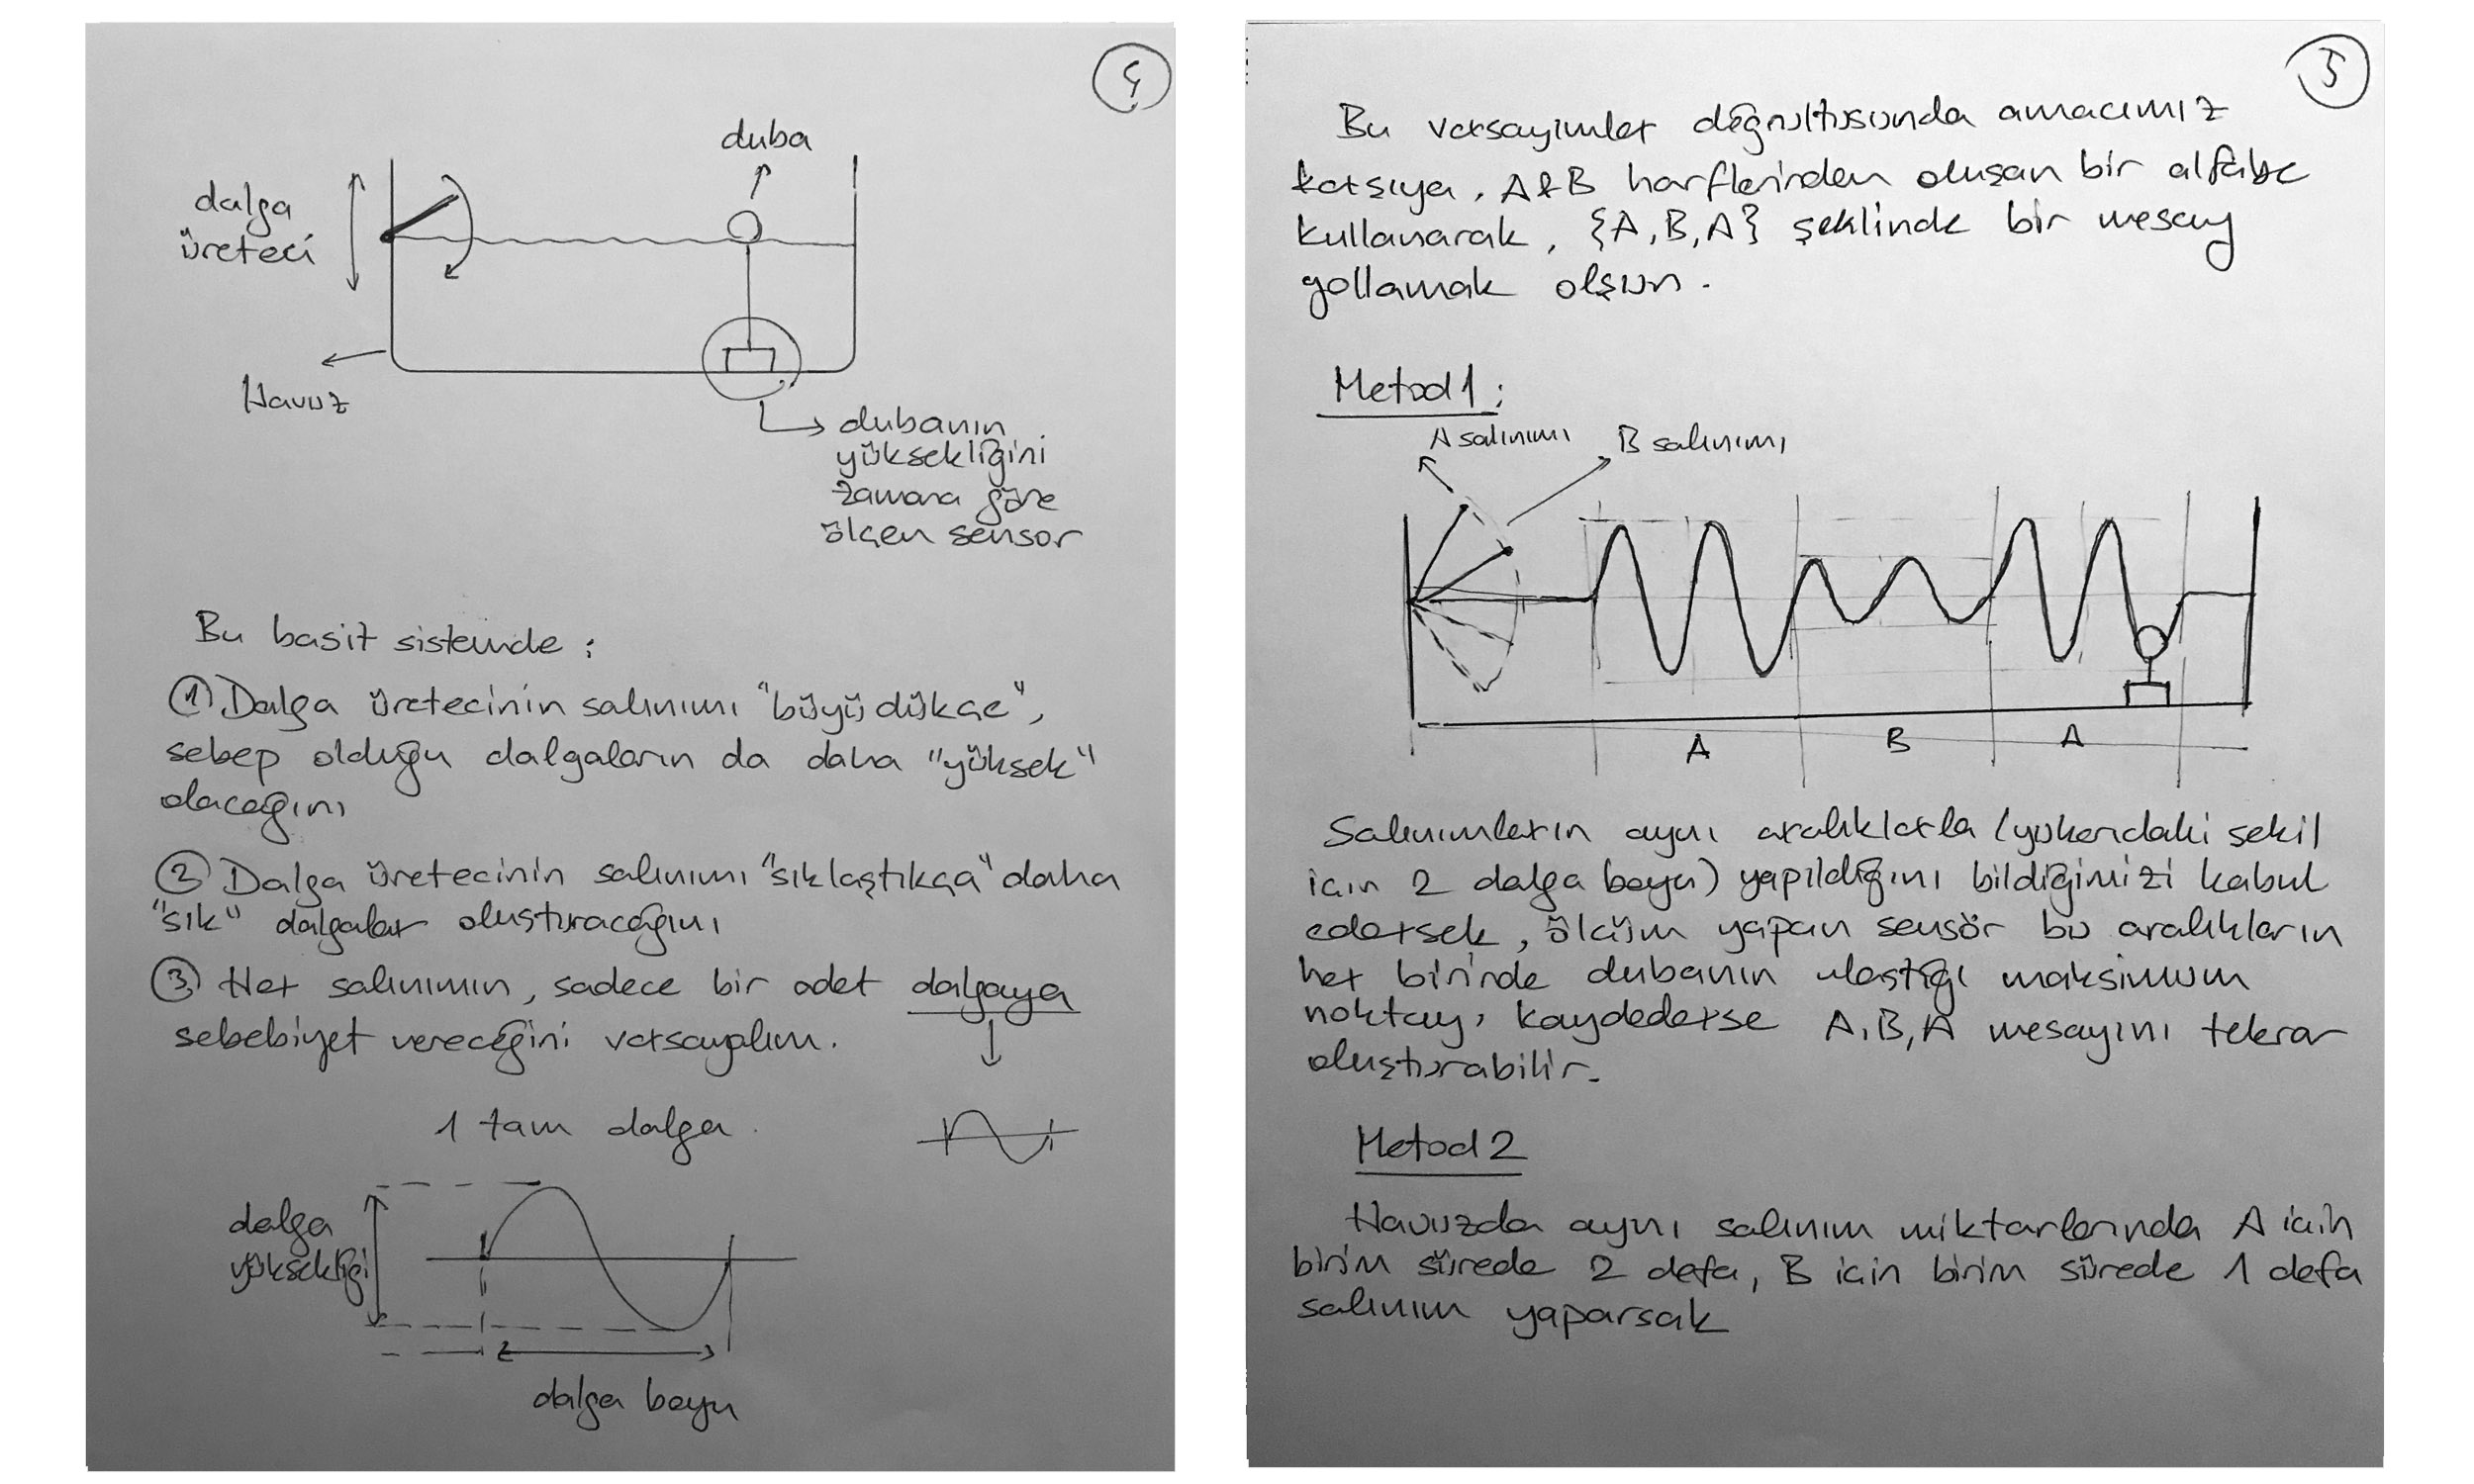 4
duba
dalga
üreteci
Havuz
dubanın
yüksekliğini
zamana göre
ölçen sensor
Bu basit sistemde :
① Dalga üretecinin salınımı "büyüdükçe",
sebep olduğu dalgaların da daha "yüksek"
olacağını
② Dalga üretecinin salınımı "sıklaştıkça" daha
"sık" dalgalar oluşturacağını
③ Her salınımın, sadece bir adet dalgaya
sebebiyet vereceğini varsayalım.
1 tam dalga
dalga
yüksekliği
dalga boyu
5
Bu varsayımlar doğrultusunda amacımız
karşıya, A&B harflerinden oluşan bir alfabe
kullanarak, {A,B,A} şeklinde bir mesaj
yollamak olsun.
Metod 1:
A salınımı
B salınımı
A
B
A
Salınımların aynı aralıklarla (yukarıdaki şekil
için 2 dalga boyu) yapıldığını bildiğimizi kabul
edersek, ölçüm yapan sensör bu aralıkların
her birinde dubanın ulaştığı maksimum
noktayı kaydederse A,B,A mesajını tekrar
oluşturabilir.
Metod 2
Havuzda aynı salınım miktarlarında A için
birim sürede 2 defa, B için birim sürede 1 defa
salınım yaparsak